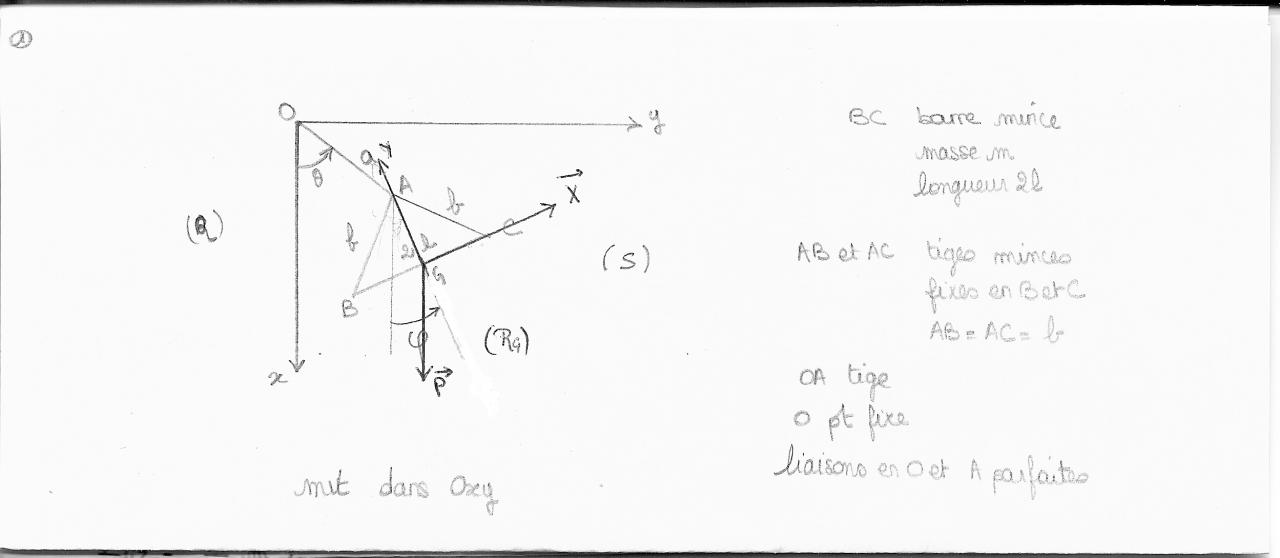 ①
O
y
θ
a
Y
A
b
C
X
(R)
b
2l
G
(S)
B
φ
(R_G)
x
P
mvt dans Oxy
BC barre mince
masse m
longueur 2l
AB et AC tiges minces
fixes en B et C
AB = AC = b
OA tige
O pt fixe
liaisons en O et A parfaites